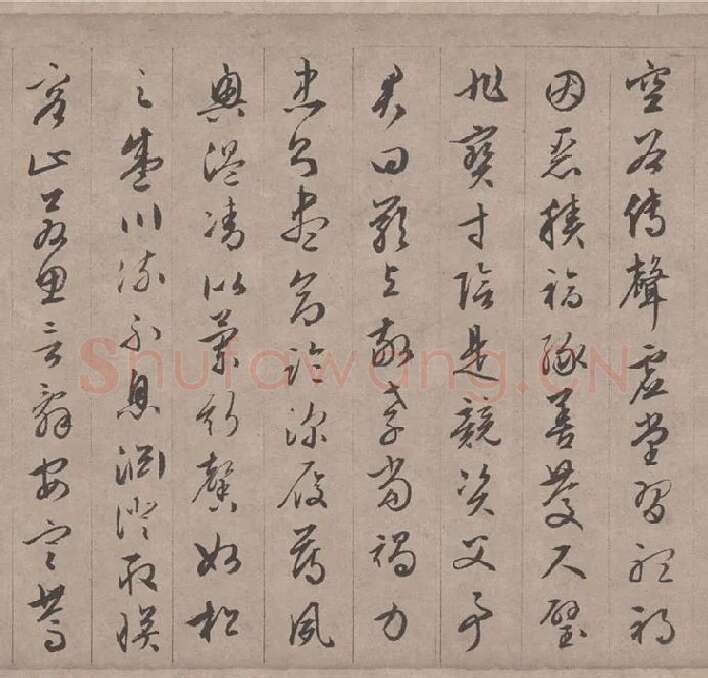 空谷傳聲虛堂習聽禍
因惡積福緣善慶尺璧
非寶寸陰是競資父事
君曰嚴與敬孝當竭力
忠則盡命臨深履薄夙
興溫凊似蘭斯馨如松
之盛川流不息淵澄取暎
容止若思言辭安定篤
Shufawang.CN